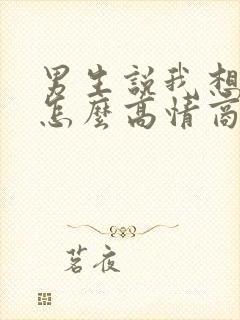 男生說我想
怎麼高情商
茗夜